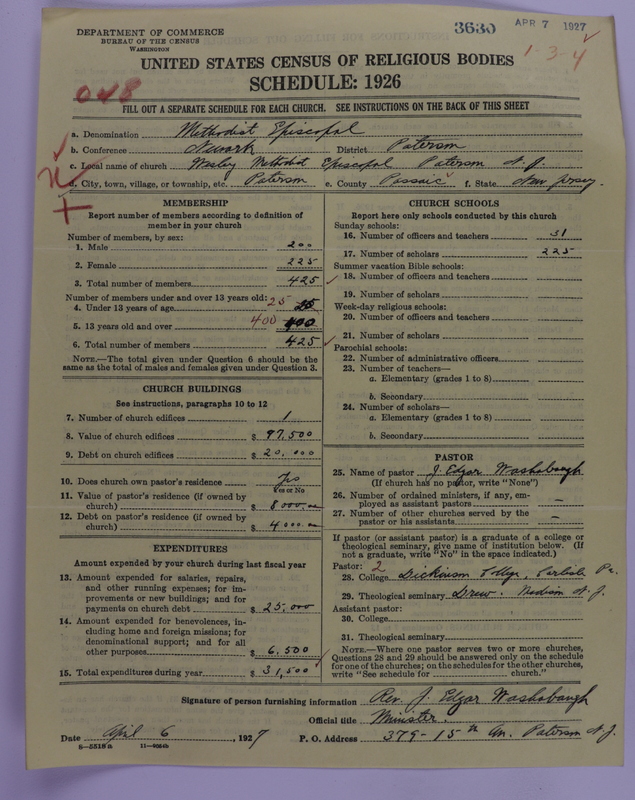 DEPARTMENT OF COMMERCE
BUREAU OF THE CENSUS
WASHINGTON
3630 APR 7 1927
1-3-4
UNITED STATES CENSUS OF RELIGIOUS BODIES
SCHEDULE: 1926
048
FILL OUT A SEPARATE SCHEDULE FOR EACH CHURCH. SEE INSTRUCTIONS ON THE BACK OF THIS SHEET
a. Denomination Methodist Episcopal
b. Conference Newark District Paterson
c. Local name of church Wesley Methodist Episcopal Paterson N. J.
d. City, town, village, or township, etc. Paterson e. County Passaic f. State New Jersey.
MEMBERSHIP
Report number of members according to definition of
member in your church
Number of members, by sex:
1. Male 200
2. Female 225
3. Total number of members 425
Number of members under and over 13 years old:
4. Under 13 years of age 25 25
5. 13 years old and over 400 400
6. Total number of members 425
NOTE.—The total given under Question 6 should be
same as the total of males and females given under Question 3.
CHURCH BUILDINGS
See instructions, paragraphs 10 to 12
7. Number of church edifices 1
8. Value of church edifices $ 97,500
9. Debt on church edifices $ 20,000
10. Does church own pastor's residence Yes
Yes or No
11. Value of pastor's residence (if owned by
church) $ 8000.00
12. Debt on pastor's residence (if owned by
church) $ 4000.00
EXPENDITURES
Amount expended by your church during last fiscal year
13. Amount expended for salaries, repairs,
and other running expenses; for im-
provements or new buildings; and for
payments on church debt $ 25,000
14. Amount expended for benevolences, in-
cluding home and foreign missions; for
denominational support; and for all
other purposes $ 6,500
15. Total expenditures during year $ 31,500
CHURCH SCHOOLS
Report here only schools conducted by this church
Sunday schools:
16. Number of officers and teachers 31
17. Number of scholars 225
Summer vacation Bible schools:
18. Number of officers and teachers
19. Number of scholars
Week-day religious schools:
20. Number of officers and teachers
21. Number of scholars
Parochial schools:
22. Number of administrative officers
23. Number of teachers—
a. Elementary (grades 1 to 8)
b. Secondary
24. Number of scholars—
a. Elementary (grades 1 to 8)
b. Secondary
PASTOR
25. Name of pastor J. Edgar Washabaugh
(If church has no pastor, write "None")
26. Number of ordained ministers, if any, em-
ployed as assistant pastors —
27. Number of other churches served by the
pastor or his assistants —
If pastor (or assistant pastor) is a graduate of a college or
theological seminary, give name of institution below. (If
not a graduate, write "No" in the space indicated.)
Pastor: 2
28. College Dickinson College, Carlisle Pa.
29. Theological seminary Drew. Madison N. J.
Assistant pastor:
30. College
31. Theological seminary
NOTE.—Where one pastor serves two or more churches,
Questions 28 and 29 should be answered only on the schedule
for one of the churches; on the schedules for the other churches,
write "See schedule for church."
Signature of person furnishing information Rev. J. Edgar Washabaugh
Official title Minister.
Date April 6, 1927 P. O. Address 379-15th Av. Paterson N. J.
8-5518a 11-9054b